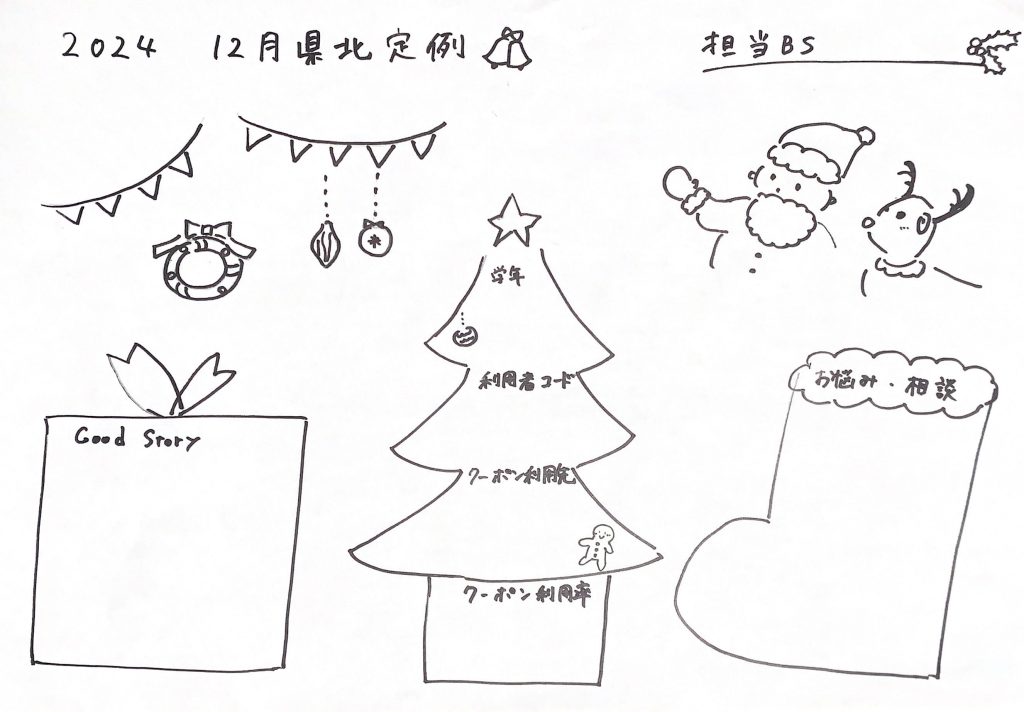 2024 12月県北定例
担当BS
学年
利用者コード
クーポン利用先
クーポン利用率
Good Story
お悩み・相談